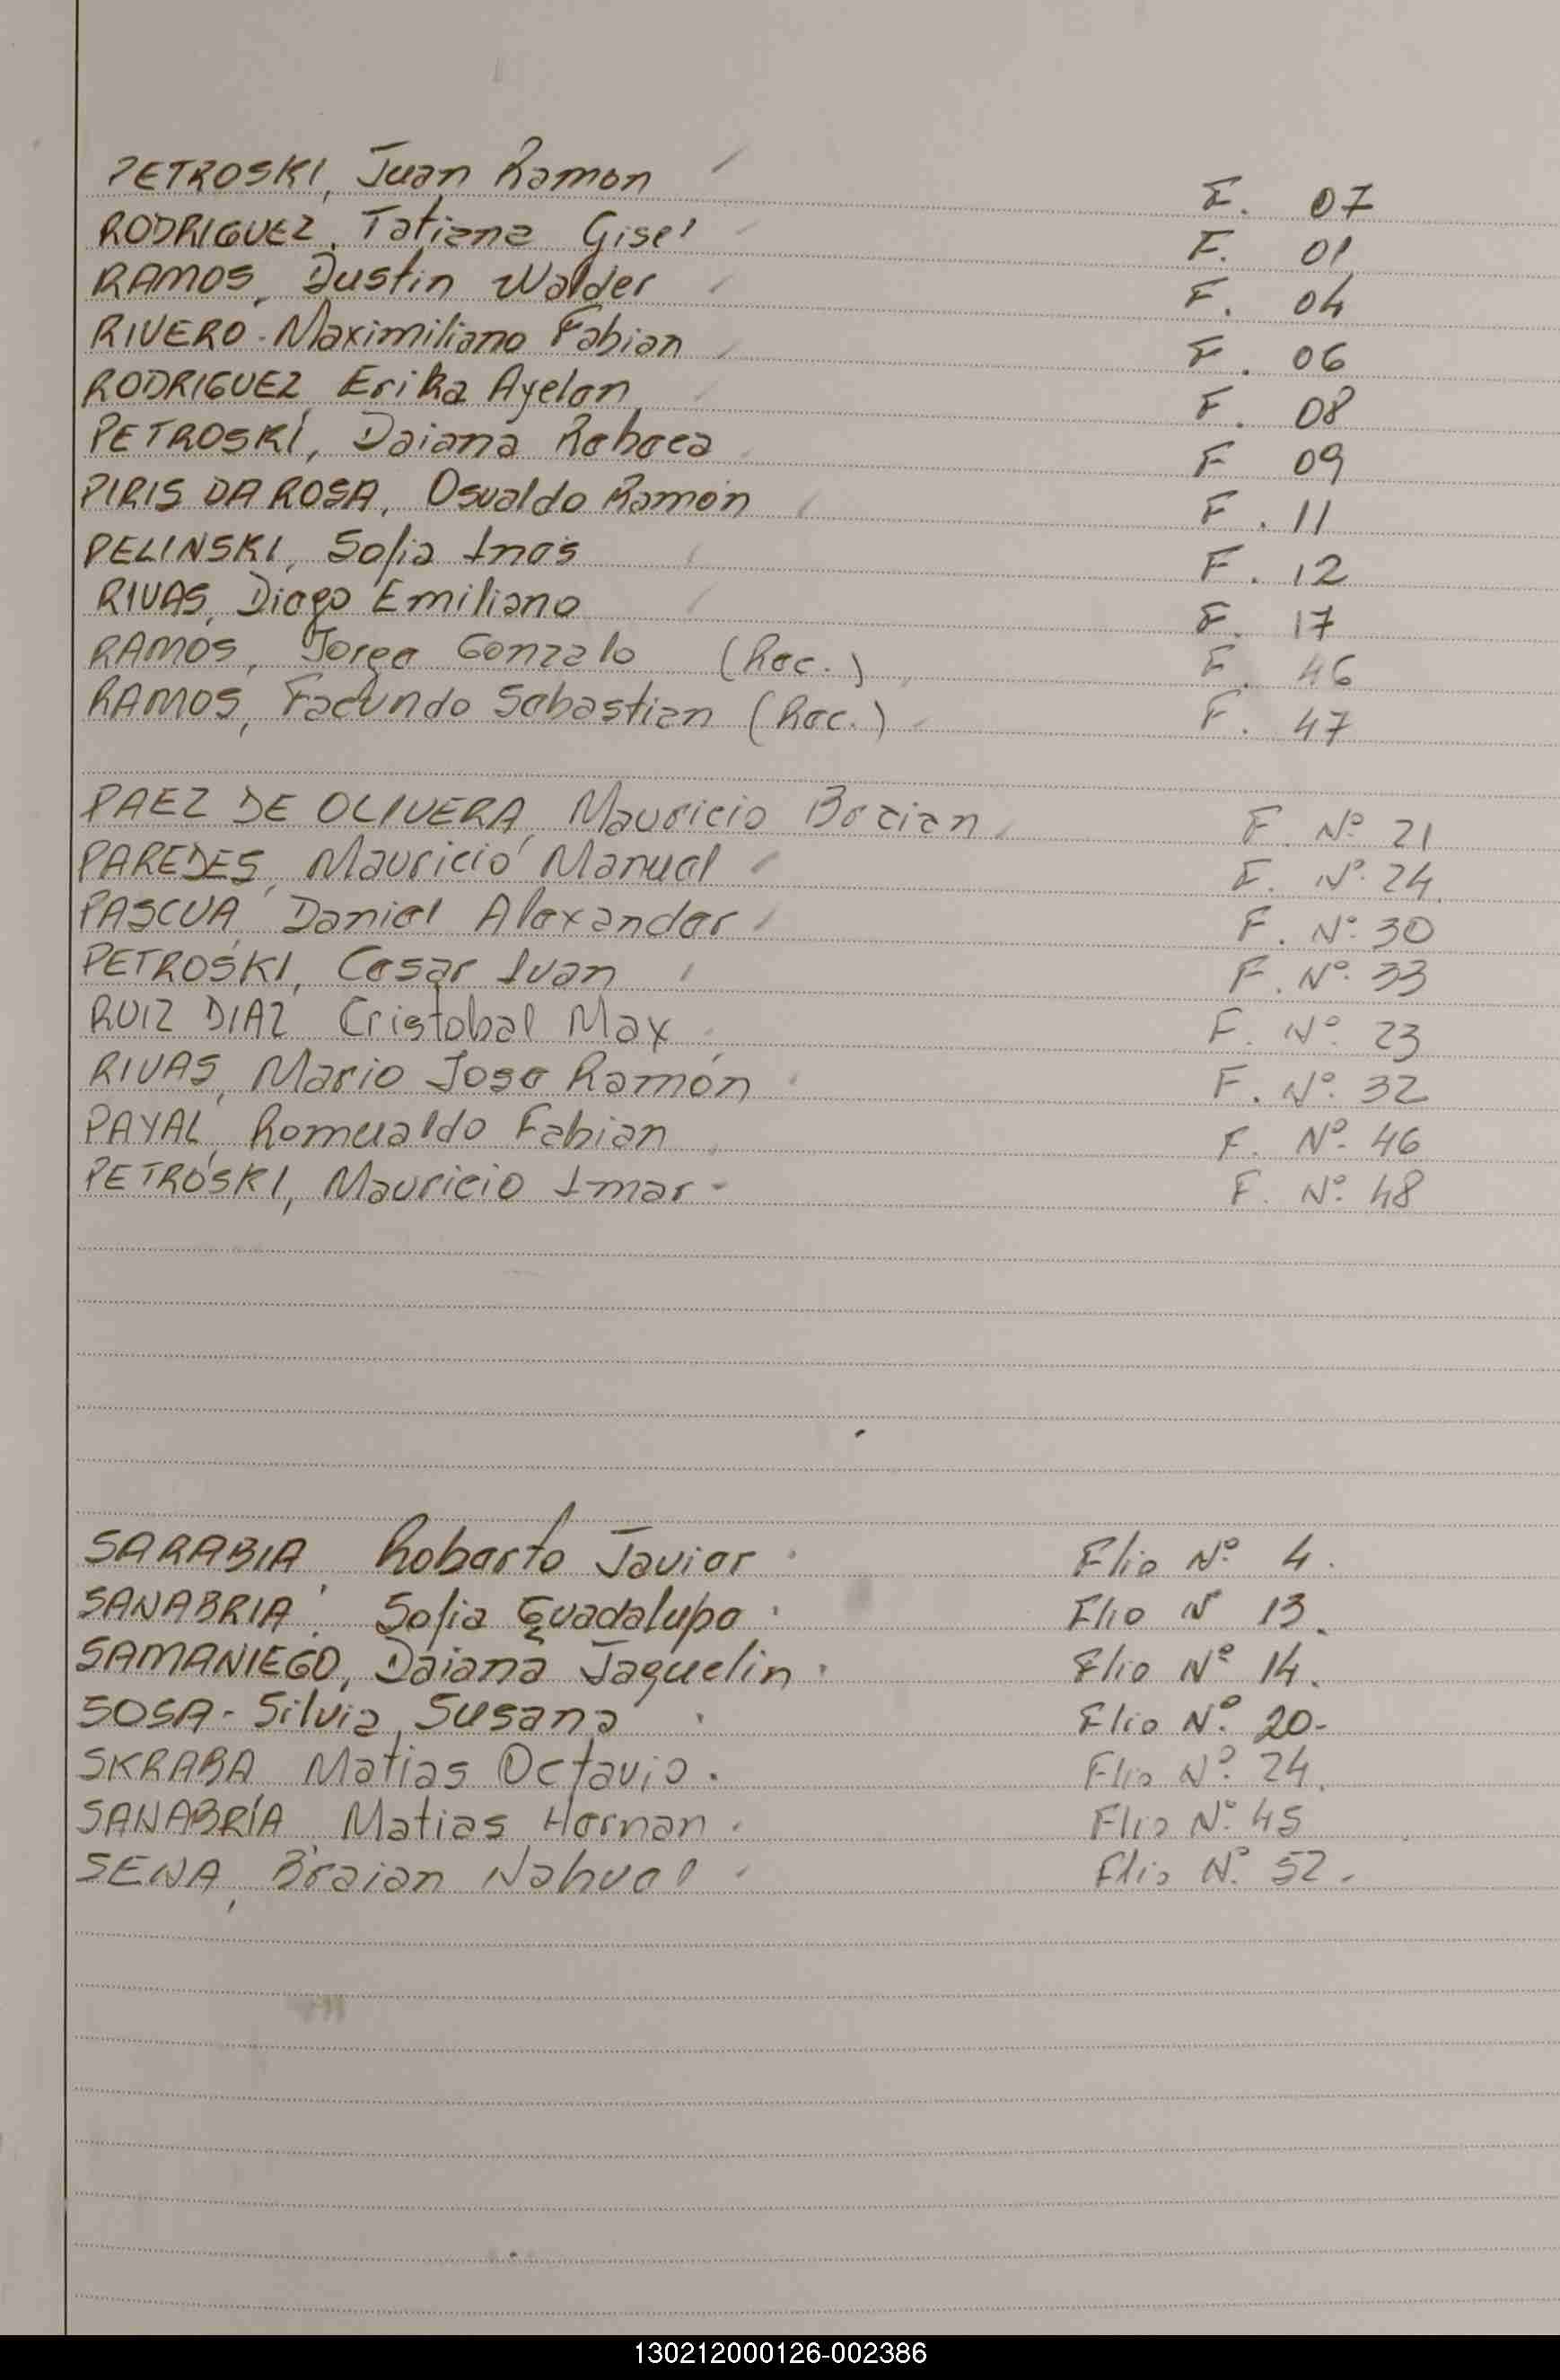 PETROSKI, Juan Ramon F. 07
RODRIGUEZ, Tatiana Gisel F. 01
RAMOS, Dustin Walder F. 04
RIVERO - Maximiliano Fabian F. 06
RODRIGUEZ, Erika Ayelen F. 08
PETROSKI, Daiana Rebeca F 09
PIRIS DA ROSA, Osvaldo Ramón F. 11
PELINSKI, Sofia Inés F. 12
RIVAS, Diego Emiliano F. 17
RAMOS, Jorge Gonzalo (Rec.) F. 46
RAMOS, Facundo Sebastian (Rec.) F. 47
PAEZ DE OLIVERA, Mauricio Braian F. Nº 21
PAREDES, Mauricio Manuel F. Nº 24
PASCUA, Daniel Alexander F. Nº 30
PETROSKI, Cesar Ivan F. Nº 33
RUIZ DIAZ, Cristobal Max F. Nº 23
RIVAS, Mario Jose Ramón F. Nº 32
PAYAL, Romualdo Fabian F. Nº 46
PETROSKI, Mauricio Imar F. Nº 48
SARABIA, Roberto Javier Flio Nº 4.
SANABRIA, Sofia Guadalupe Flio Nº 13.
SAMANIEGO, Daiana Jaquelin Flio Nº 14.
SOSA - Silvia Susana Flio Nº 20-
SKRABA Matias Octavio. Flio Nº 24.
SANABRÍA, Matias Hernan. Flio Nº 45
SENA, Braian Nahuel Flio Nº 52.
130212000126-002386